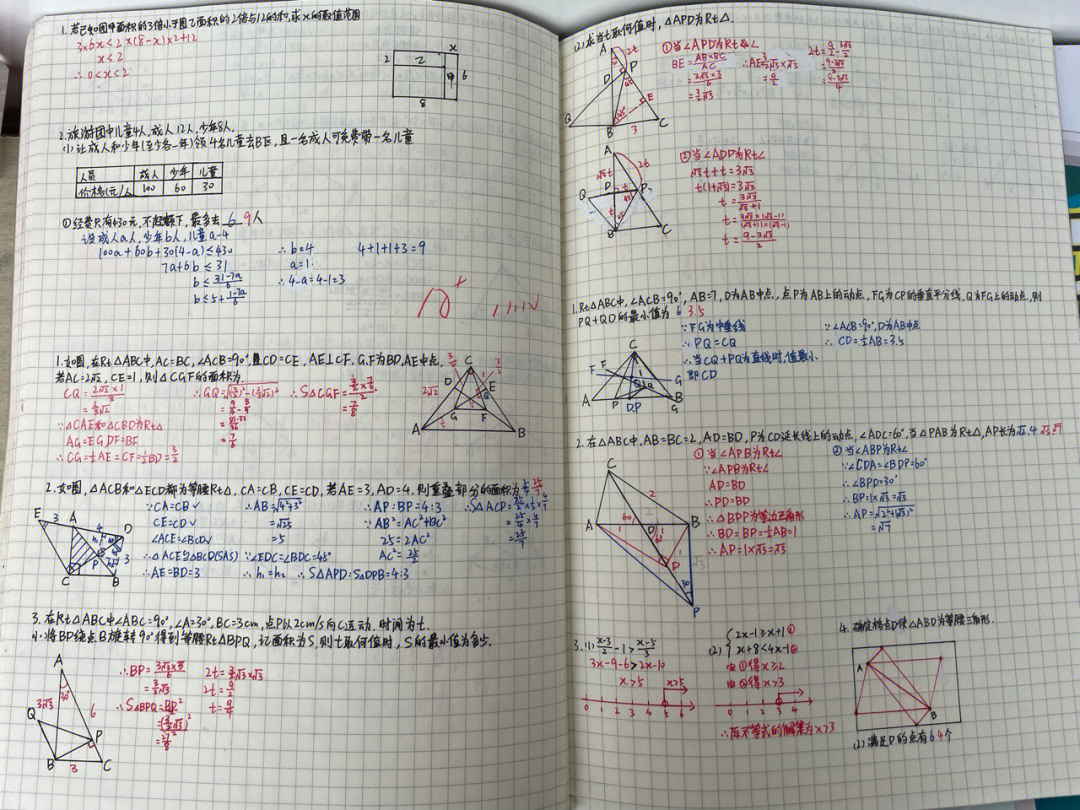 1. 若已知图甲面积的3倍小于图乙面积的2倍与12的和,求x的取值范围
3×6x<2×(8-x)×2+12
x<2
∴0<x<2
x
2
6
8
2. 旅游团中儿童4人,成人12人,少年8人.
(1)让成人和少年(至少各一年)领4名儿童去B区,且一名成人可免费带一名儿童
人员 成人 少年 儿童
价格(元/人 100 60 30
①经费只有430元,不超额下,最多去 6 9人
设成人a人,少年b人,儿童a-4
100a+60b+30(4-a)≤430
7a+6b≤31
b≤(31-7a)/6
b≤5+(1-7a)/6
∴b=4
a=1
∴4-a=4-1=3
4+1+1+3=9
A+
1. 如图,在Rt△ABC中,AC=BC,∠ACB=90°,且CD=CE,AE⊥CF.G.F为BD,AE中点,
若AC=2√2,CE=1,则△CGF的面积为
∵△CAE和△CBD为Rt△
AG=EG,DF=BF
∴CG=½AE=CF=½BD=3/2
2. 如图,△ACB和△ECD都为等腰Rt△,CA=CB,CE=CD,若AE=3,AD=4,则重叠部分的面积为
∵CA=CB√
CE=CD√
∠ACE=∠BCD√
∴△ACE≌△BCD(SAS)
∴AE=BD=3
∴AB=√(4²+3²)
=√25
=5
∵∠EDC=∠BDC=45°
∴h₁=h₂
∴AP:BP=4:3
∵AB²=AC²+BC²
25=2AC²
AC²=25/2
∴S△APD:S△DPB=4:3
3. 在Rt△ABC中∠ABC=90°,∠A=30°,BC=3cm,点P以2cm/s向C运动,时间为t.
(1)将BP绕点B旋转90°得到等腰Rt△BPQ,记面积为S,则t取何值时,S的最小值为多少.
2t=9/2
t=9/4
(2)求当t取何值时,△APD为Rt△.
①当∠APD为Rt∠
BE=(AB×BC)/AC
=(3√3×3)/6
=3/2√3
②当∠ADP为Rt∠
√3t+t=3√3
t(1+√3)=3√3
t=3√3/(√3+1)
t=3√3×(√3-1)/(√3+1)×(√3-1)
t=(9-3√3)/2
1. Rt△ABC中,∠ACB=90°,AB=7,D为AB中点,点P为AB上的动点,FG为CP的垂直平分线,Q为FG上的动点,则
PQ+QD的最小值为 6 3.5
∵FG为中垂线
∴PQ=CQ
∴当CQ+PQ为直线时,值最小.
即CD
∵∠ACB=90°,D为AB中点
∴CD=½AB=3.5
2. 在△ABC中,AB=BC=2,AD=BD,P为CD延长线上的动点,∠ADC=60°,当△PAB为Rt△,AP长为
①当∠APB为Rt∠
∵∠APB为Rt∠
AD=BD
∴PD=BD
∴△BDP为等边三角形
∴BD=BP=½AB=1
∴AP=1×√3=√3
②当∠ABP为Rt∠
∵∠CDA=∠BDP=60°
∴∠BPD=30°
∴BP=1×√3=√3
∴AP=√(2²+(√3)²)
=√7
3. (1) (x-3)/2-1>(x-5)/3
3x-9-6>2x-10
x>5
x>5
0 1 2 3 4 5 6
(2) {2x-1≥x+1①
x+8<4x-1②
由①得x≥2
由②得x>3
0 1 2 3 4
∴原不等式的解集为x>3
4. 确定格点D使△ABD为等腰三角形.
A
B
(2)满足D的点有6 4个